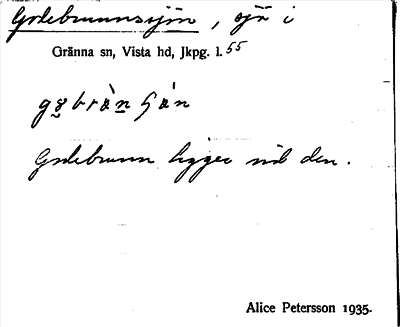 Godebrunnsjön, sjö i
Gränna sn, Vista hd, Jkpg. l. 55
Godebrunn ligger vid den.
Alice Petersson 1935.